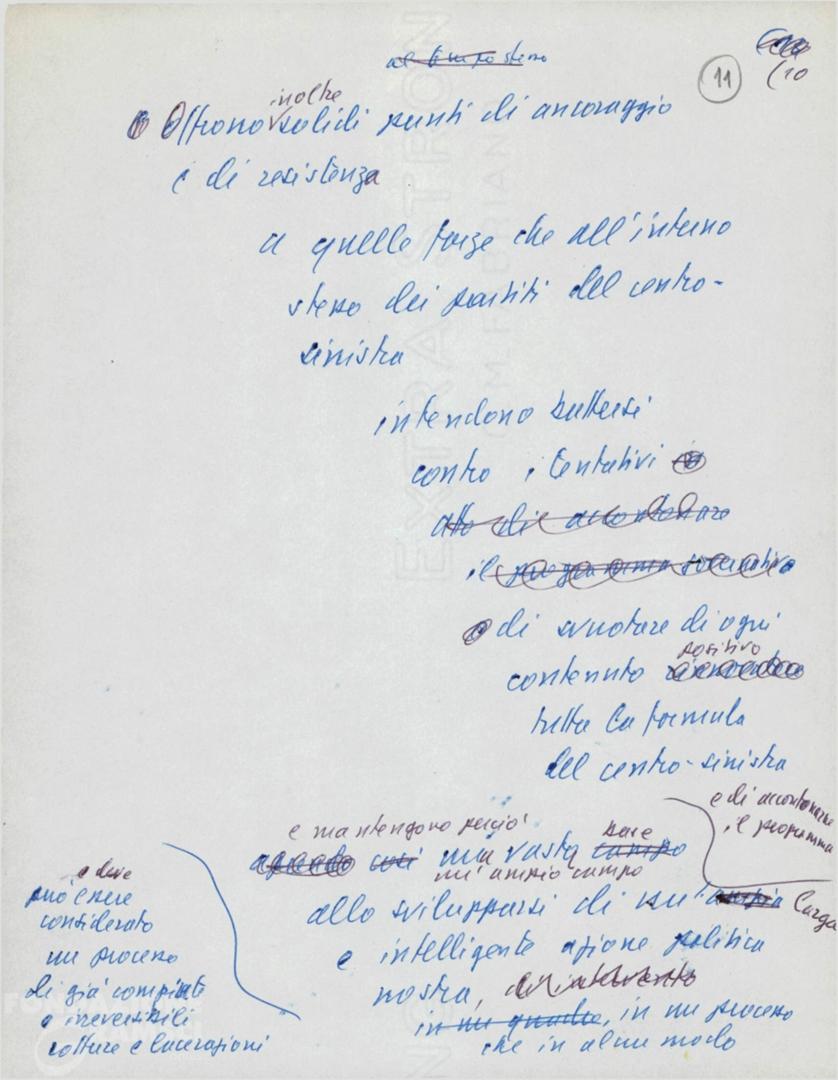 al tempo stesso
11
(10
inoltre
Offrono solidi punti di ancoraggio
e di resistenza
a quelle forze che all'interno
stesso dei partiti del centro-
sinistra
intendono battersi
contro i tentativi
atto di accantonare
il programma
di svuotare di ogni
positivo
contenuto
tutta la formula
del centro-sinistra
e di accantonarne
il programma
e mantengono perciò
base
aprendo così una vasta campo
un'ampio campo
allo svilupparsi di un'ampia larga
e intelligente azione politica
nostra, di intervento
in un quadro, in un processo
che in alcun modo
e deve
può essere
considerato
un processo
di già compiute
e irreversibili
rotture e lacerazioni
EXTRA STRONG